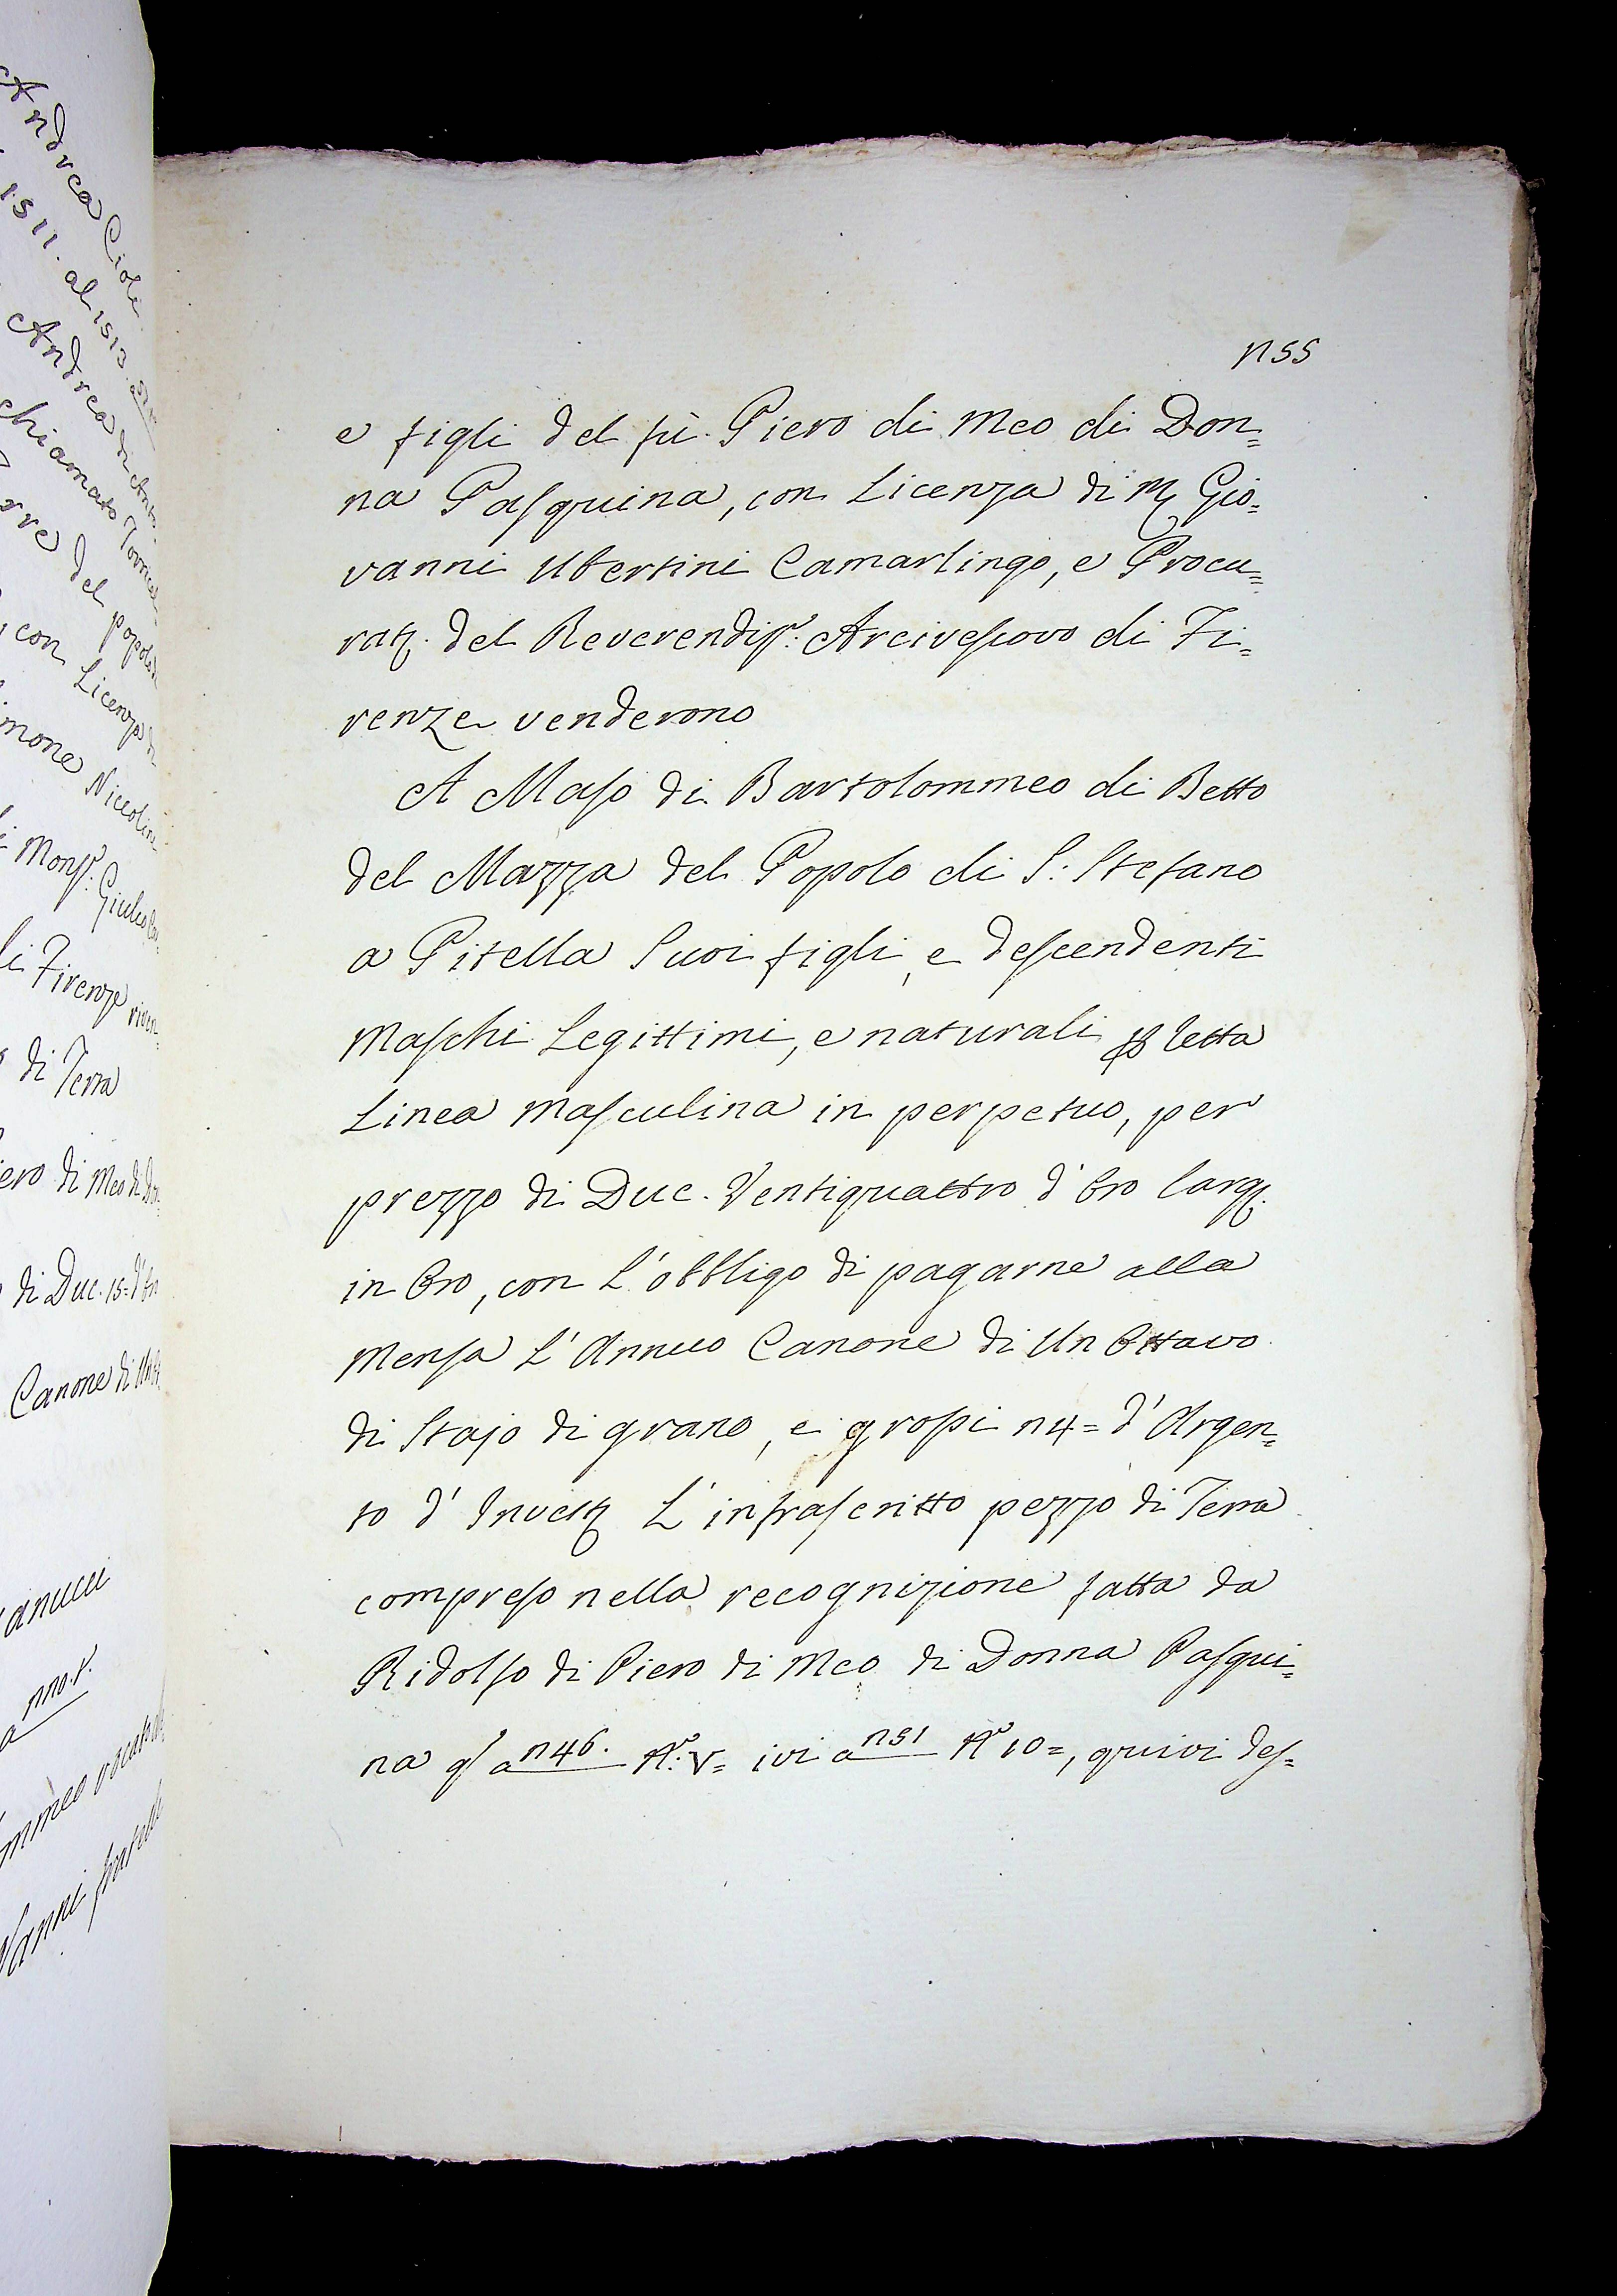 n55
e figli del fù. Piero di Meo di Don=
na Pasquina, con Licenza di M Gio=
vanni Ubertini Camarlingo, e Procu=
rat. del Reverendiss.º Arcivescovo di Fi=
renze venderono
A Maso di Bartolommeo di Betto
del Mazza del Popolo di S: Stefano
a Pitella Suoi figli, e descendenti
Maschi Legittimi, e naturali p retta
Linea Masculina in perpetuo, per
prezzo di Duc. Ventiquattro d'Oro larg.
in Oro, con L'obbligo di pagarne alla
Mensa L'Annuo Canone di Un Ottavo
di Stajo di grano, e grossi n4= d'Argen=
to d'Invest L'infrascritto pezzo di Terra
compreso nella recognizione fatta da
Ridolfo di Piero di Meo di Donna Pasqui=
na a n46. Nº: V= ivi a n51 Nº 10=, quivi des=
Andrea Cioli
1511. al 1513.
Andrea di Anto
chiamato
del popolo
con Licenza di
Niccolini
Mons.r Giulio
di Firenze
di Terra
Piero di Meo di Don=
di Duc. 15= d'Oro
Canone di Un